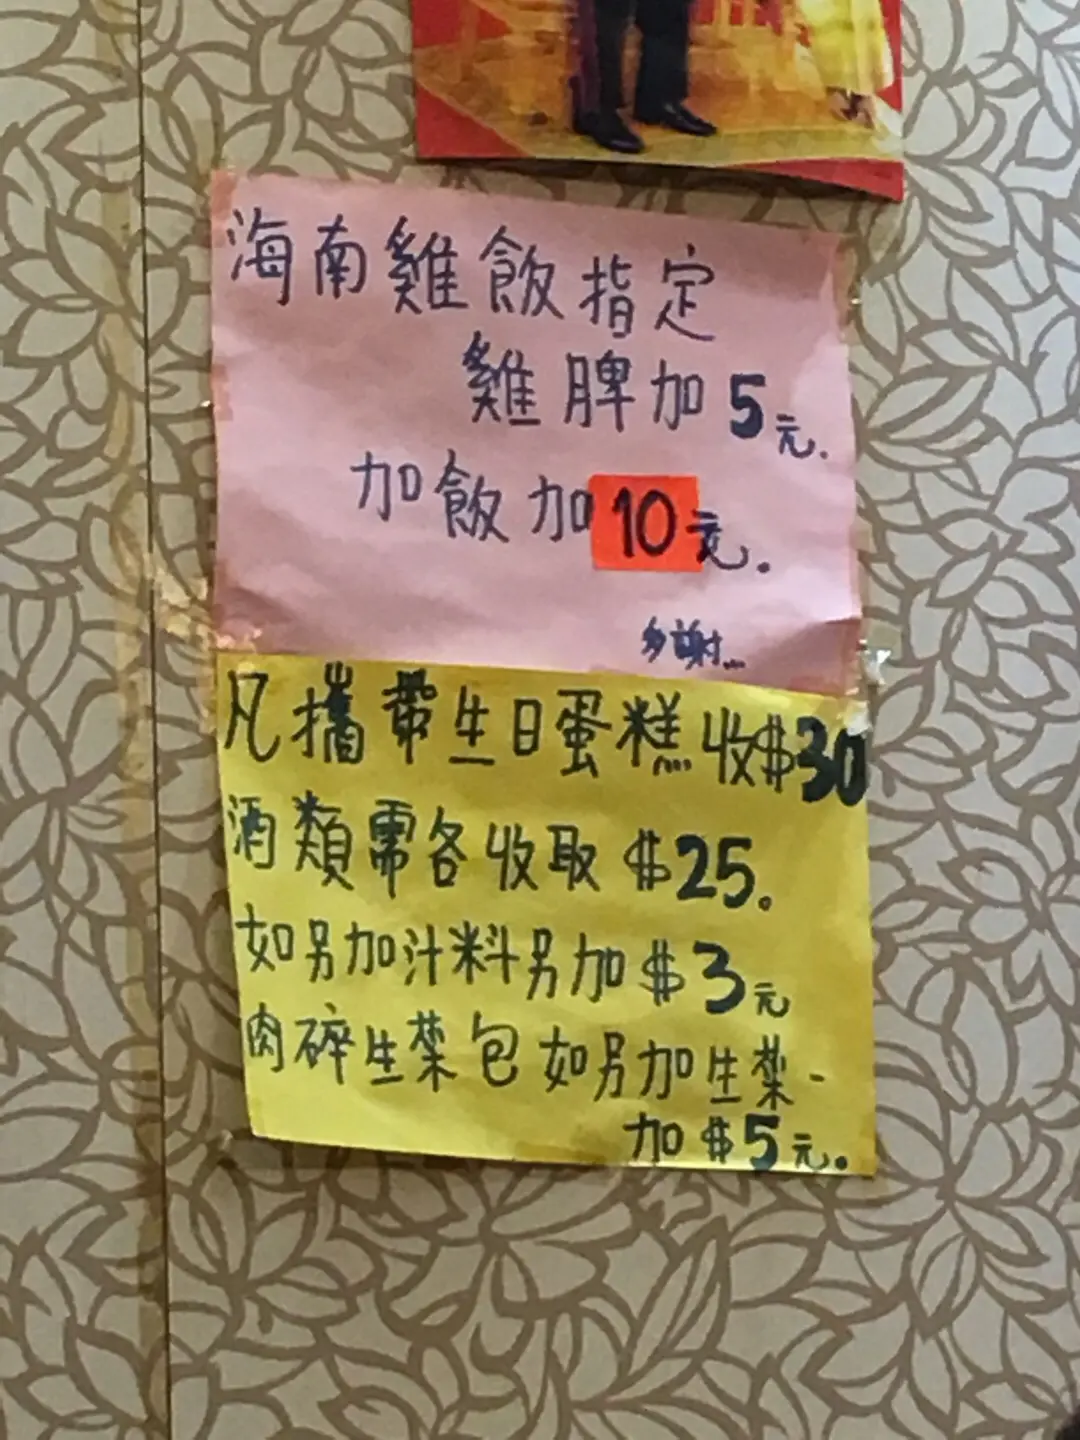 海南雞飯指定
雞脾加5元.
加飯加10元.
多謝...
凡攜帶生日蛋糕收$30
酒類需各收取$25.
如另加汁料另加$3元
肉碎生菜包如另加生菜-
加$5元.